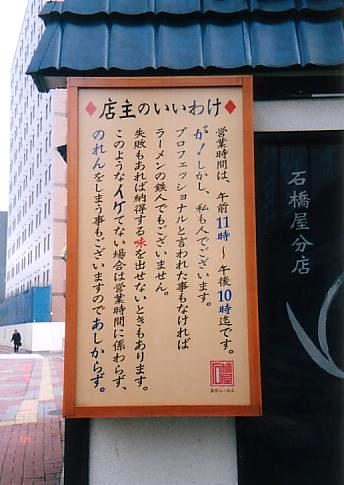 ◆店主のいいわけ◆
営業時間は、午前11時～午後10時迄です。
が!しかし、私も人でございます。
プロフェッショナルと言われた事もなければ
ラーメンの鉄人でもございません。
失敗もあれば納得する味を出せないときもあります。
このようなイケてない場合は営業時間に係わらず、
のれんをしまう事もございますのであしからず。
石橋屋分店